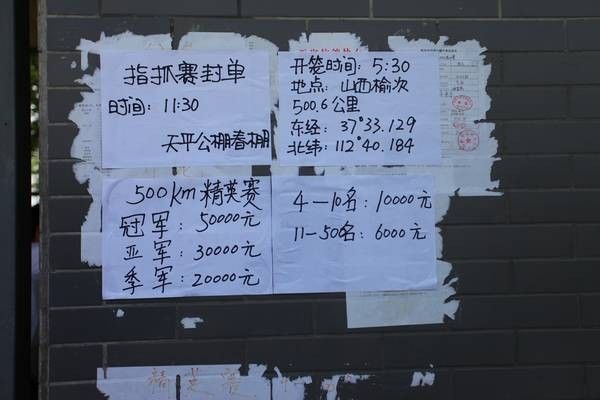 指抓赛封单
时间：11:30
天平公棚春棚
开笼时间：5:30
地点：山西榆次
500.6公里
东经：37°33.129
北纬：112°40.184
500km精英赛
冠军：50000元
亚军：30000元
季军：20000元
4—10名：10000元
11—50名：6000元
精英赛